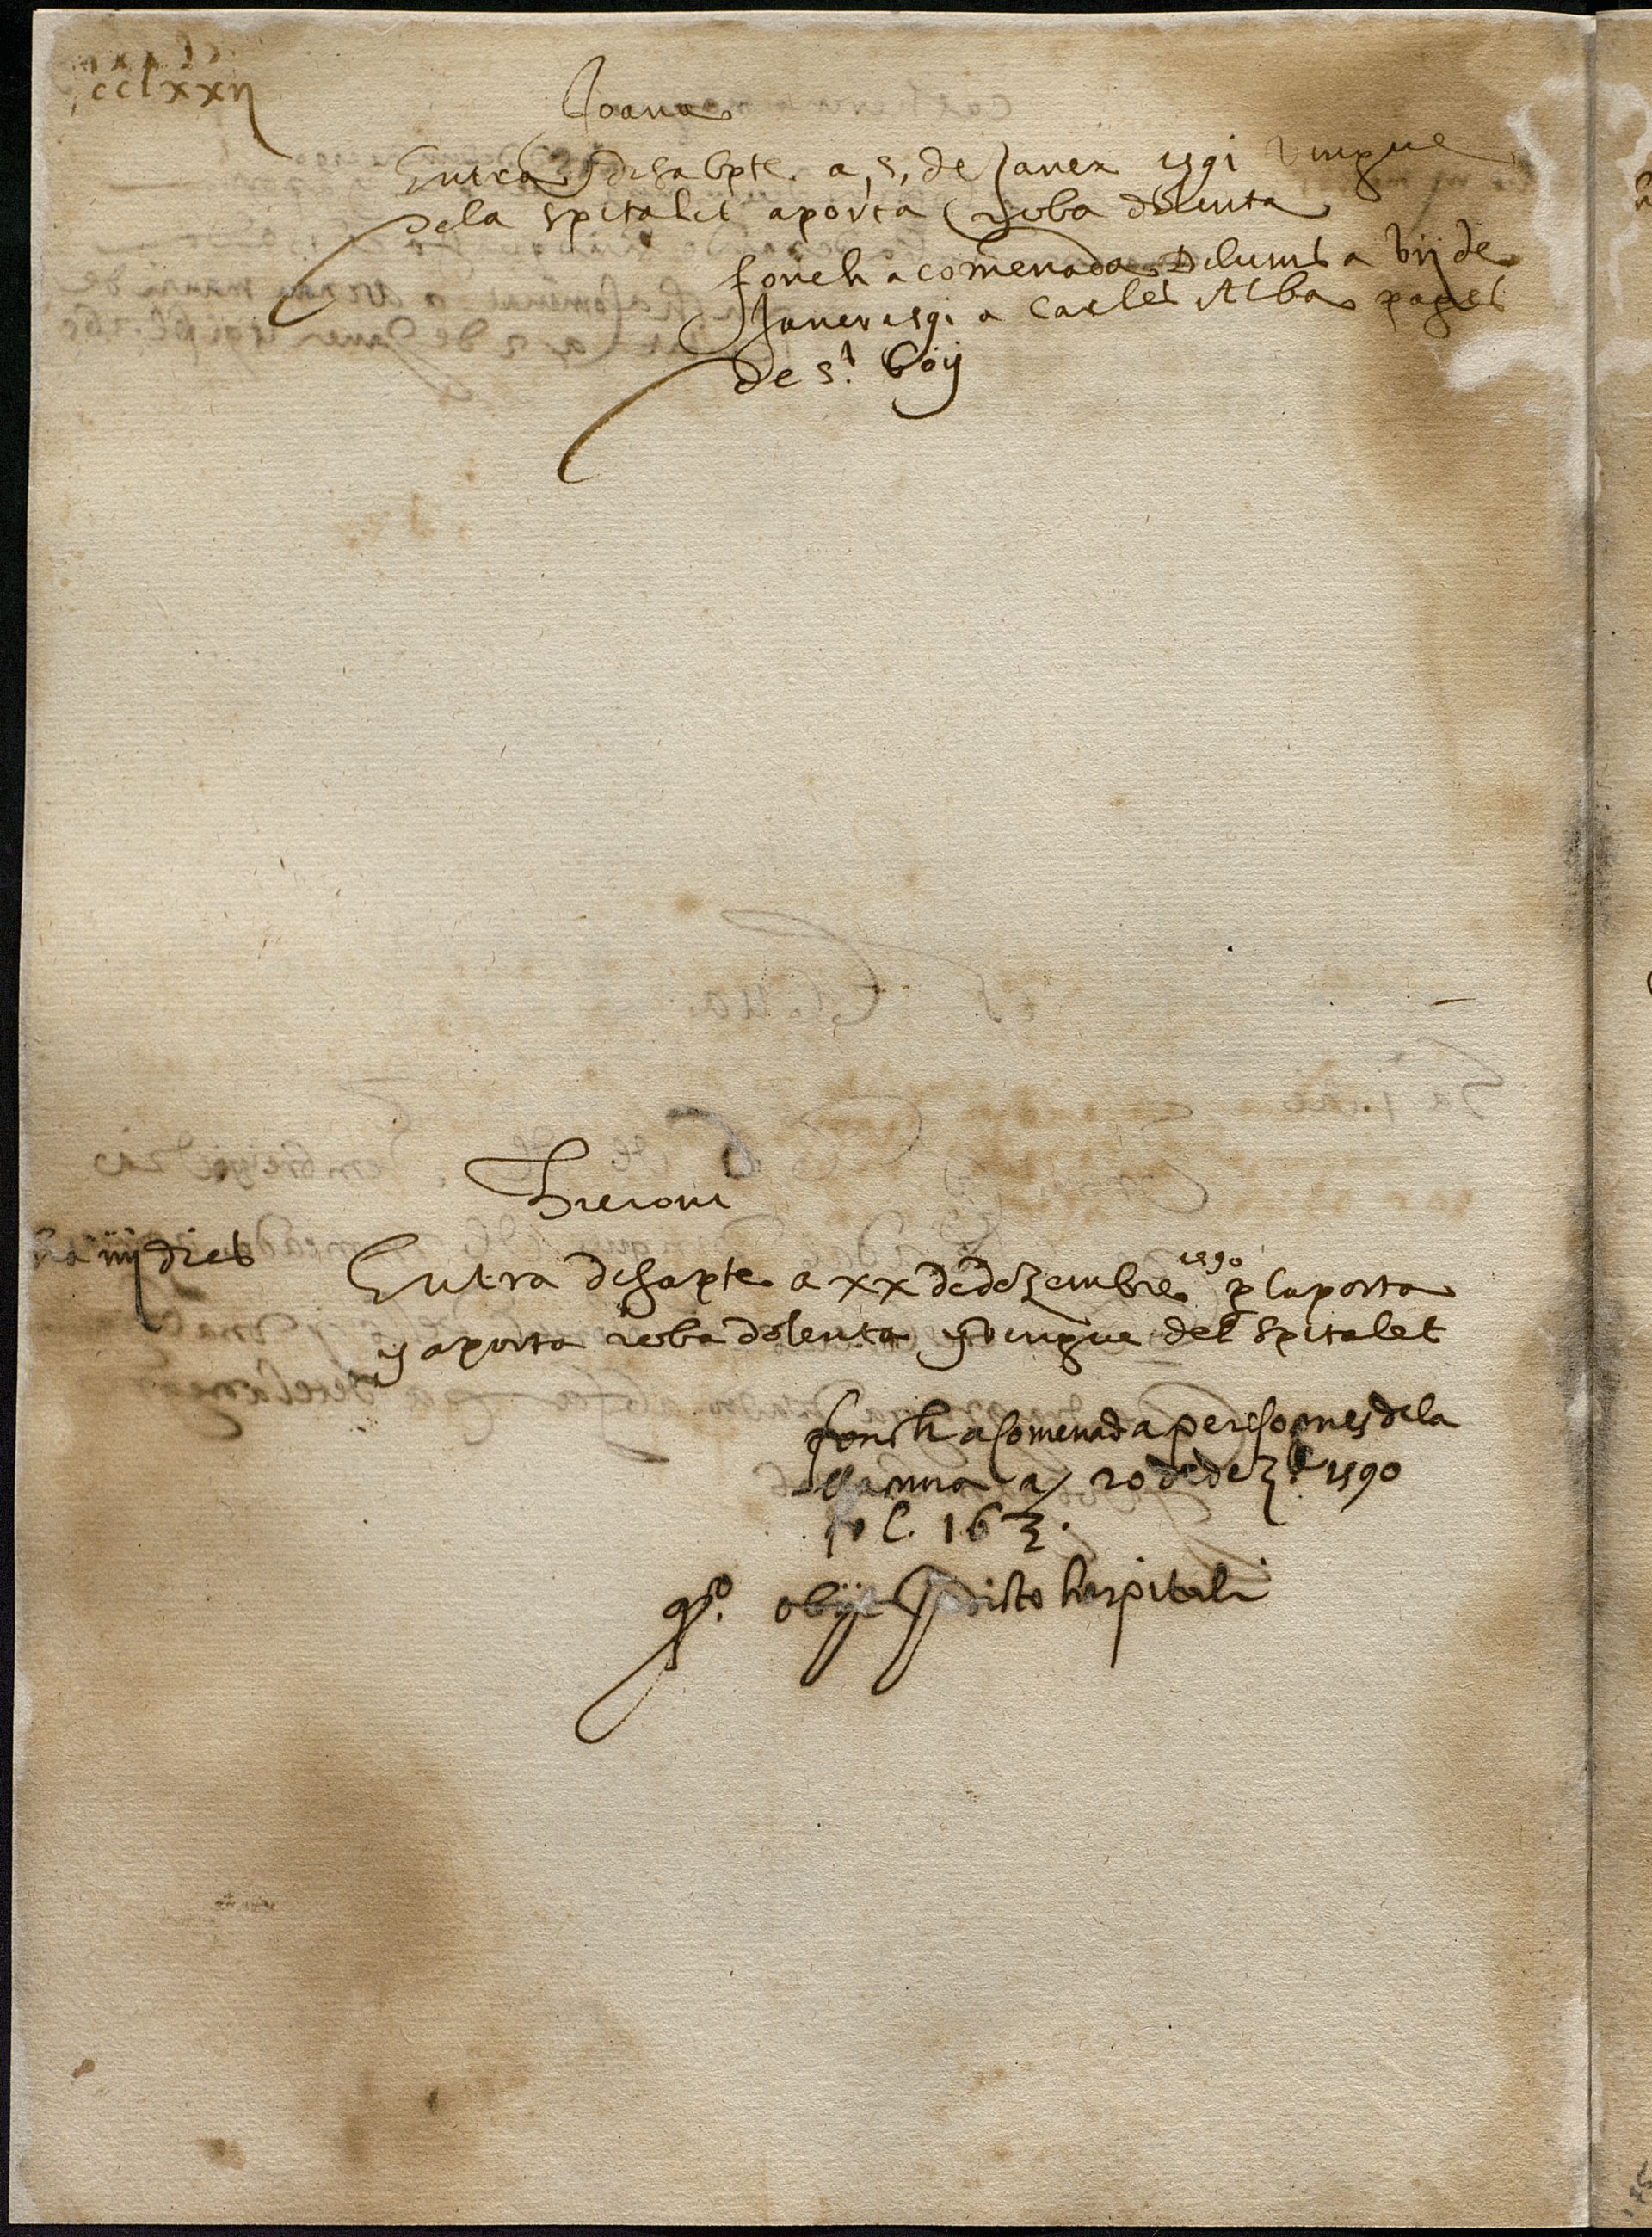 cclxxij
Joana
Entra disabpte a 5, de Janer 1591 vingue
de la spitalet aporta roba dolenta
fonch acomenada diluns a vij de
Janer 1591 a Carles Alba pages
de St. boy
Hieroni
ha iiij dies
Entra disapte a xx de dezembre 1590 p la porta
y aporta roba dolenta y vingue del spitalet
fonch acomenada per so mes de la
a 20 de dez.e 1590
fol. 163.
obijt in dicto hospitali